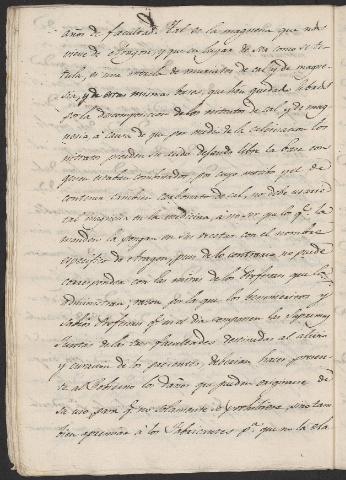 años de facultad. Tal es la magnesia que nos
viene de Aragon, y que en lugar de ser como se ti-
tula, es una mezcla de muriatos de cal y de magne-
sia, y de estas mismas bases, que han quedado libres
por la decomposicion de los nitratos de cal y de mag-
nesia, á causa de que por medio de la calcinacion los
nitratos pierden su acido dejando libre la base con
quien estaban combinados, por cuyo motivo y el de
contener tambien carbonato de cal, no debe usarse
tal magnesia en la medicina, á no ser qe los qe la
manden la pongan en sus recetas con el nombre
especifico de Aragon, pues de lo contrario no puede
corresponder con las miras de los Profesores que la
administran; razon por la que los benemeritos y
sabios Profesores qe en el dia componen las Supremas
Juntas de las tres facultades destinadas al alivio
y curacion de los pacientes, debieran hacer presen-
te al Gobierno los daños que pueden originarse de
su uso para qe no solamente se prohibiera, sino tam
bien apremiar á los Fabricantes pa. que no la ela